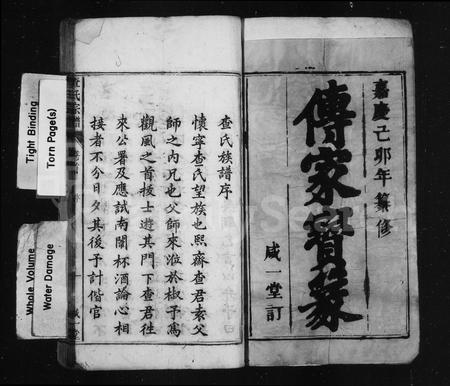 嘉慶己卯年纂修
傳家寶篆
咸一堂訂
查氏族譜序
懷寧查氏望族也熙齋查君袁父
師之內兄也父師來涖於椒予為
觀風之首拔士遊其門下查君往
來公署及應試南闈杯酒論心相
接者不分日夕其後予計偕官
查氏宗譜
序
咸一堂
Tight Binding
Torn Page(s)
Whole Volume
Water Damage